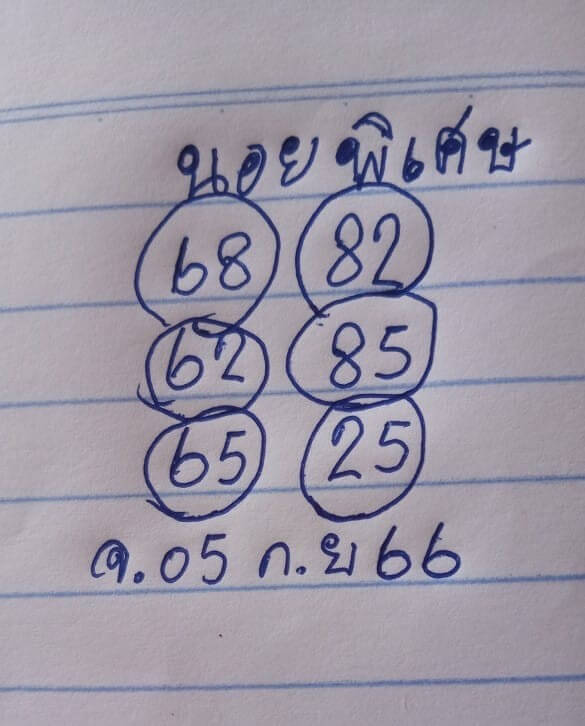 นอยพิเศษ
68 82
62 85
65 25
จ.05 ก.ย 66